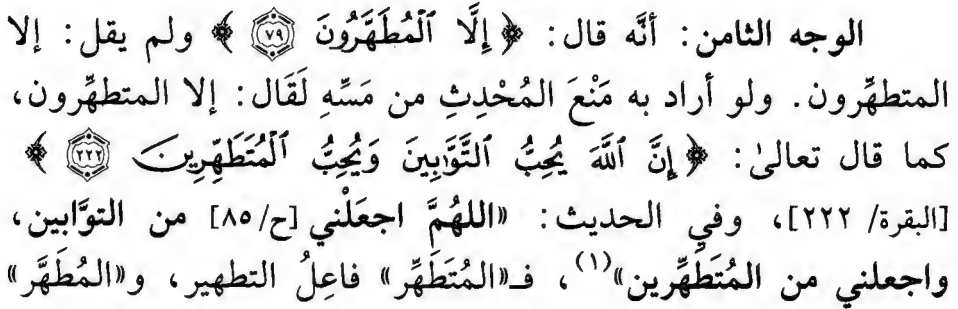 الوجه الثامن: أنَّه قال: ﴿ إِلَّا ٱلْمُطَهَّرُونَ ۝٧٩ ﴾ ولم يقل: إلا
المتطهِّرون. ولو أراد به مَنْعَ المُحْدِثِ من مَسِّهِ لَقَال: إلا المتطهِّرون،
كما قال تعالىٰ: ﴿ إِنَّ ٱللَّهَ يُحِبُّ ٱلتَّوَّٰبِينَ وَيُحِبُّ ٱلْمُتَطَهِّرِينَ ۝٢٢٢ ﴾
[البقرة/ ٢٢٢]، وفي الحديث: «اللهُمَّ اجعَلْني [ح/٨٥] من التوَّابين،
واجعلني من المُتَطَهِّرين»(١)، فـ«المُتَطَهِّر» فاعِلُ التطهير، و«المُطَهَّر»